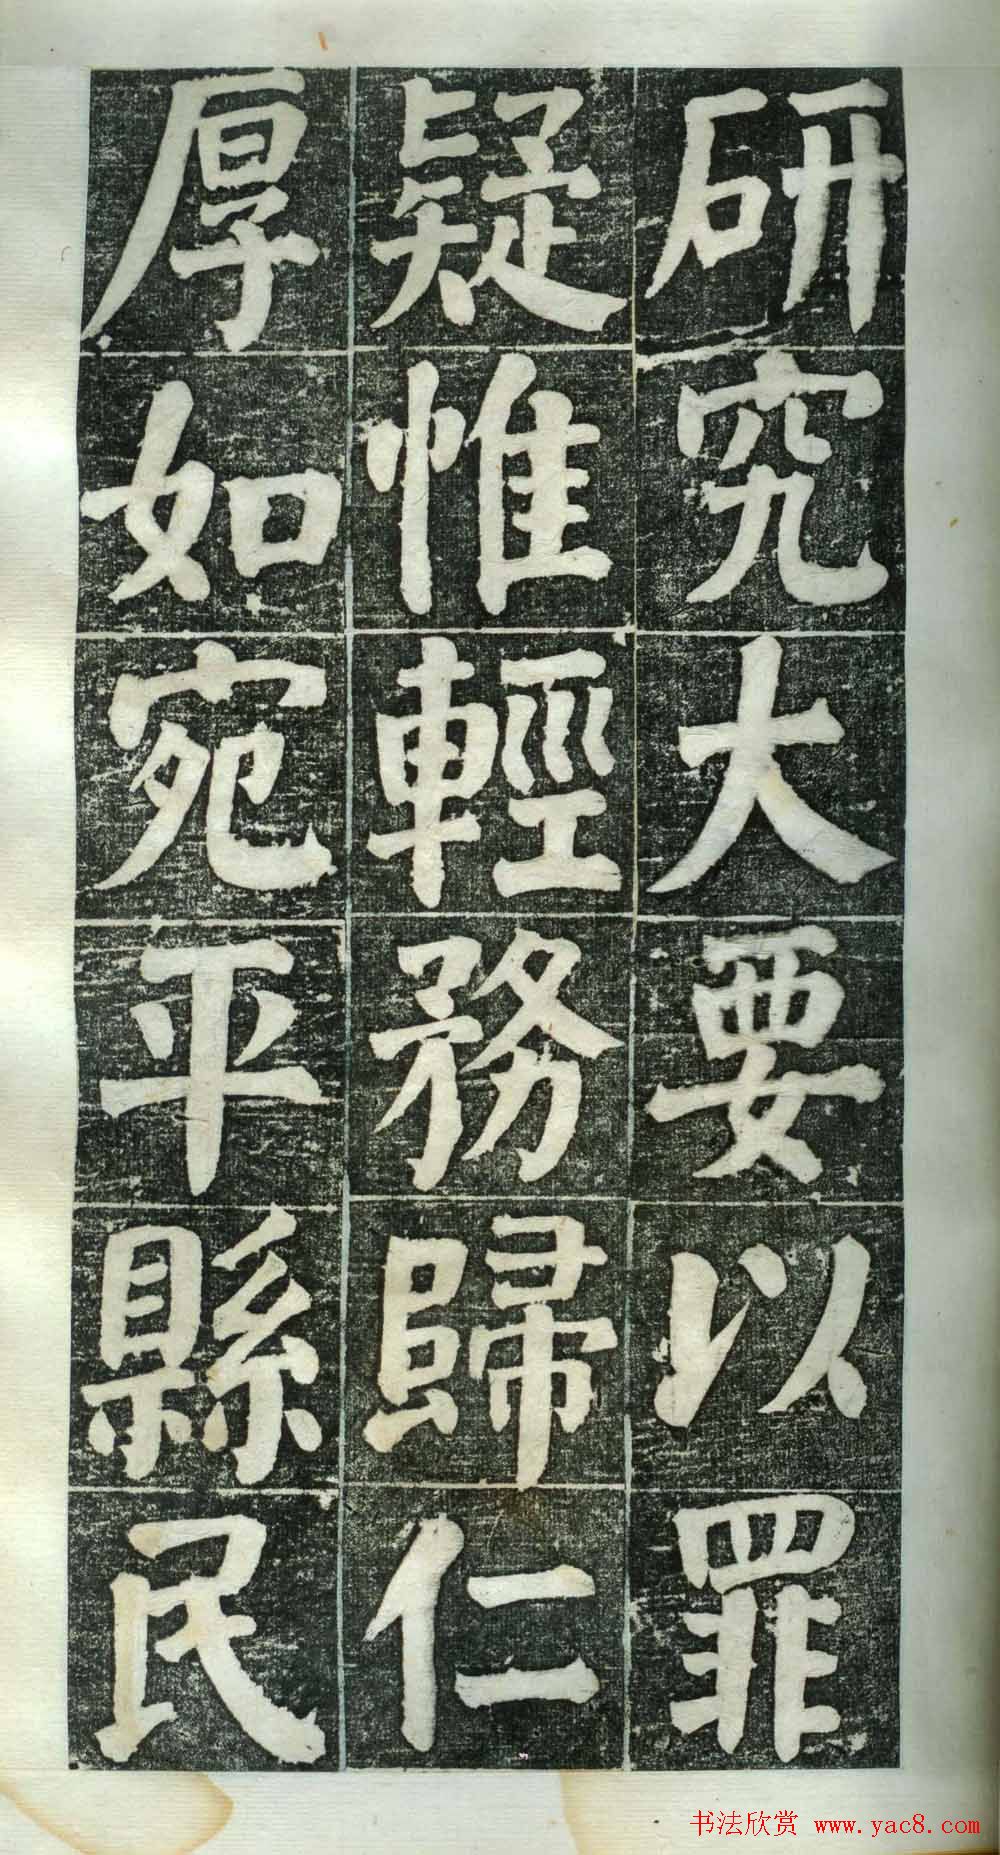 研究大要以罪
疑惟輕務歸仁
厚如宛平縣民
书法欣赏 www.yac8.com